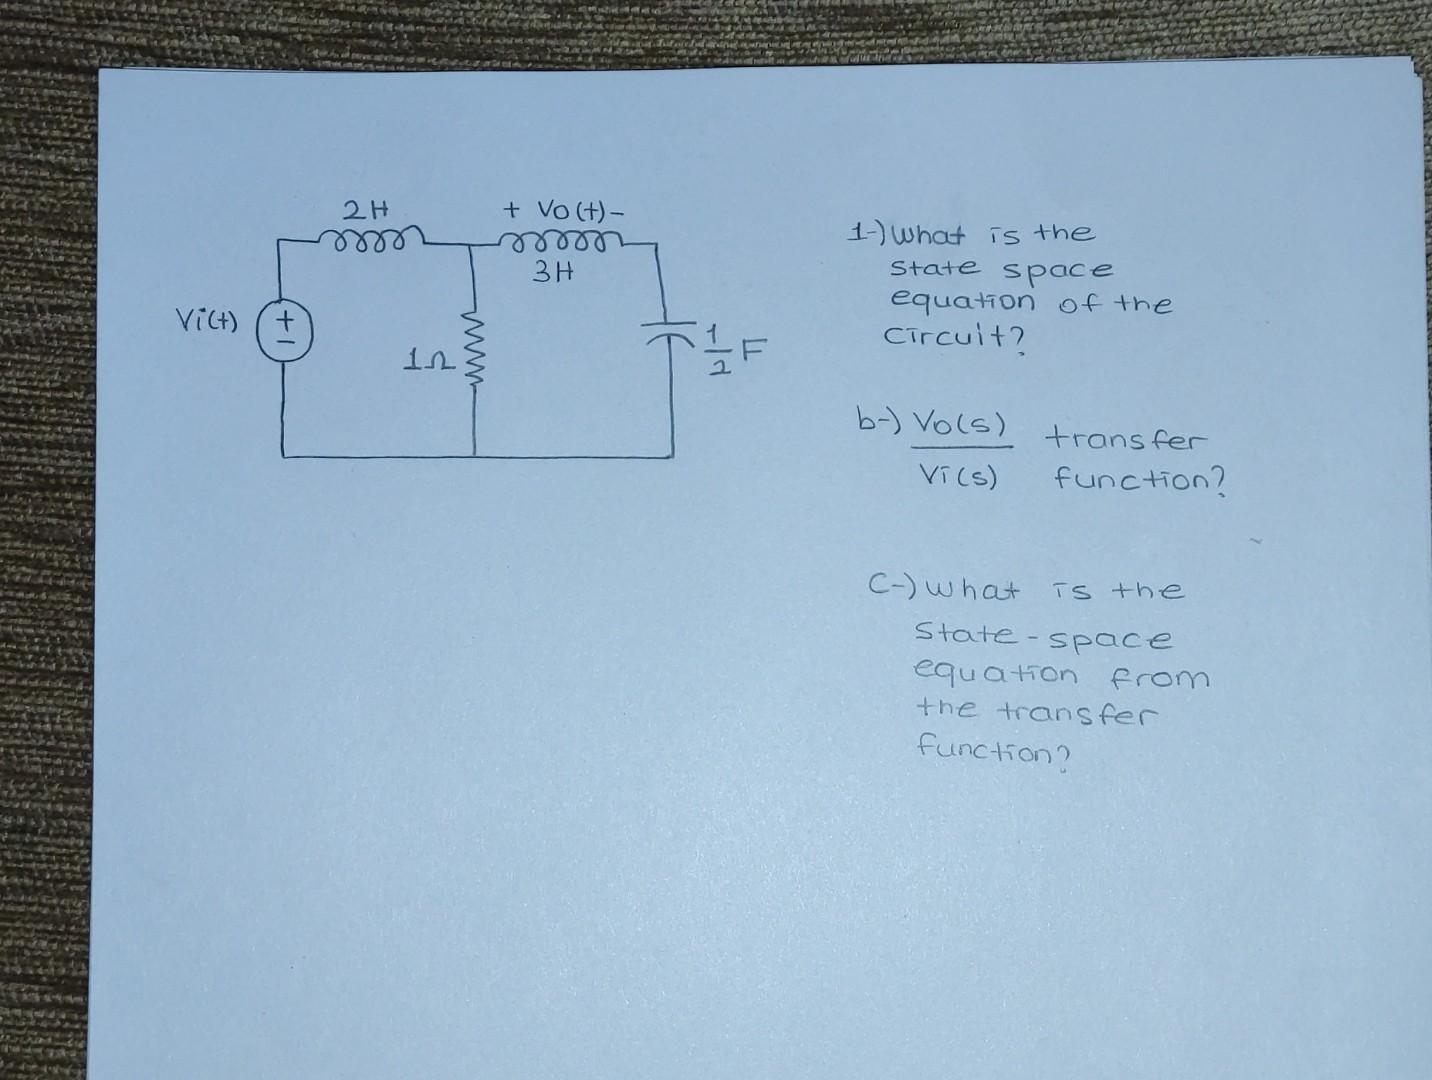 2H
+ Vo(t) -
3H
Vi(t)
+
-
1Ω
1
2
F
1-) What is the
state space
equation of the
circuit?
b-) Vo(s) transfer
Vi(s) function?
C-) What is the
State-space
equation from
the transfer
function?